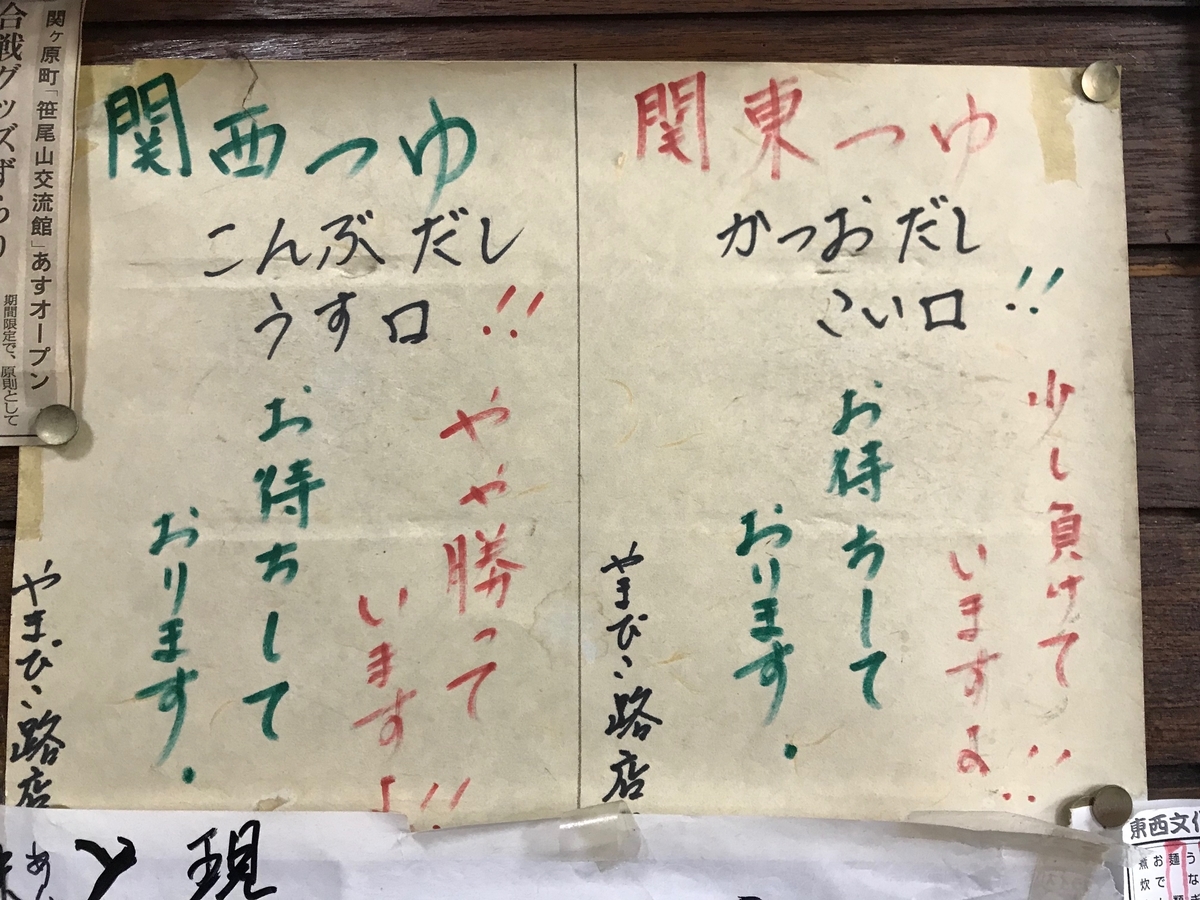 関ヶ原町「笹尾山交流館」あすオープン
合戦グッズずらり
期間限定で、原則として
関西つゆ
こんぶだし
うす口!!
やや勝って
いますよ!!
お待ちして
おります。
やまびこ路店
関東つゆ
かつおだし
こい口!!
少し負けて
いますよ!!
お待ちして
おります。
やまびこ路店
現
東西文化